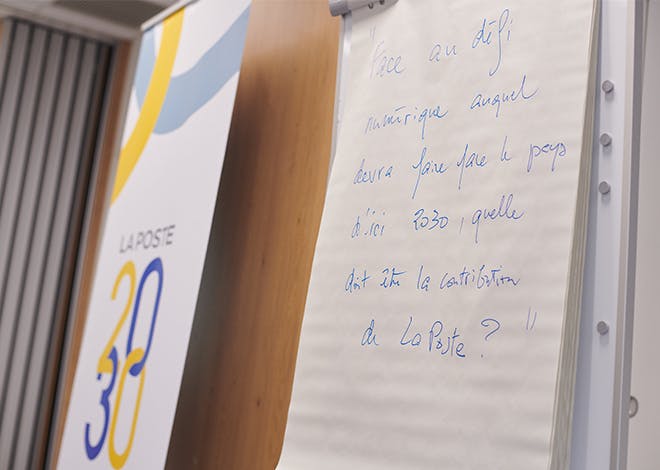 LA POSTE
2030
"Face au défi
numérique auquel
devra faire face le pays
d'ici 2030, quelle
doit être la contribution
de La Poste ? "